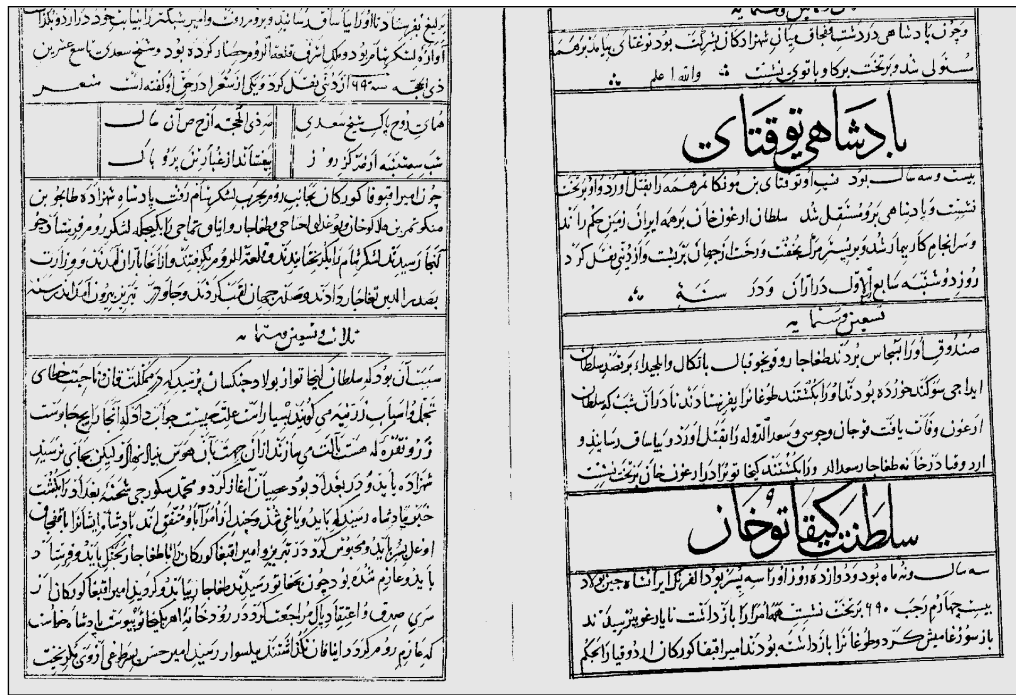 وچون بادشاهی در دشت قفجاق میان شهزادکان مشترکت بود نوغای بیامد برهمه
مستولی شد و برتخت برکا و باتوی نشست والله اعلم
بادشاهی توقتای
بیست و سه سال بود توقتای بن مونکاتمر همه را بقتل آورد و او برتخت
نشست و بادشاهی برو مستقل شد سلطان ارغون خان برهمه ایران زمین حکم راند
و سرانجام کار بیمار شد و بر بستر مرک بخفت و رخت از جهان بربست و از دنیی نقل کرد
روز دوشنبه سابع الاول در اران و در سنة
تسعین وستمایه
صندوق او را بسجاس بردند طغاجار و قونجوقبال با تکال و
ایداجی سوکند خورده بودند او را بکشتند طوغانرا بفرستادند تا در ان شب که سلطان
ارغون وفات یافت قوجان و جوسی و سعد الدوله را بقتل اورد و بیاساق رسانید و
اردوقیا در خانه طغاجار سعد الدوله را بکشتند کیخاتو برادر ارغون خان برتخت نشست
سلطنت کیقاتو خان
سه سال و نه ماه بود و دوازده روز او را سه پسر بود الافرنک ایرانشاه جین بولاد
بیست چهارم رجب ۶۹۰ برتخت نشست همه امرا را باز داشت تا یارغو پرسیدند
باز سوزغامیش کرد و طوغانرا باز داشته بودند امیر اقبقا کورکان اردوقیا را بحکم
یرلیغ بفرستاد تا او را بیاساق رسانید و بروم رفت و امیر شیکتور را بنیابت خود در اردو بگذاشت
آوازه لشکر شام بود و ملک اشرف قلعة الروم حصار کرده بود و شیخ سعدی تاسع عشرین
ذی الحجه سنه ۶۹۰ از دنیی نقل کرد و یکی از شعرا در حق او کفته است شعر
همای روح پاک شیخ سعدی مه ذی الحجه از خ ص آن سال
شب سه شنبه از مرکز روز بیفشاند از غبار تن پر و بال
چون امیر اقبوقا کورکان بجانب روم بحرب لشکر شام رفت بادشاه شهزاده طایجو بن
منکوتمر بن هلاکوخان و بوغدای احتاجی و طغاجار و ایاق تماجی را بالیکجه لشکر روم فرستاد چو
آنجا رسیدند لشکر شام را بکریختانیدند و قلعة الروم بکرفتند و از آنجا باز آمدند و وزارت
بصدر الدین تغاجار دادند و صدر جهان لقب کردند و جاو در تبریز بیرون آمد اندر سنه
ثلاث وتسعین وستمایه
سبب آن بود که سلطان کیخاتو از بولاد جنکسان پرسید که در مملکت قاآن تا جیست خطای
تجمل و اسباب زرینه می کویند بسیار است علت جیست جواب داد که آنجا رایج جاو است
زر و نقره که هست آلت می سازند از آن جهت آن هوس بنیاد نهاد و لیکن بجای نرسید
شهزاده بایدو در بغداد بود عصیان آغاز کرد و محمد سکورجی شحنه بغداد را بکشت
خبر بپادشاه رسید که بایدو یاغی شد و چند از امرا با او متفق اند بادشاه ایشانرا با قفجاق
اوغلی بسر بایدو محبوس کرد در تبریز و امیر اقبقا کورکان را با طغاجار بجنک بایدو فرستاد
بایدو عازم شده بود چون بنخاتو رسیدند طغاجار بیاید و کردیل امیر اقبقا کورکان از
سر صدق و اعتقاد پاک مراجعت کرد در رود خانه اهر بکیخاتو پیوست بادشاه خواست
که عازم روم کردد ایناقان نکذاشتند بیلسوار رسید امیر حسن بن طوغی از وی بکریخت